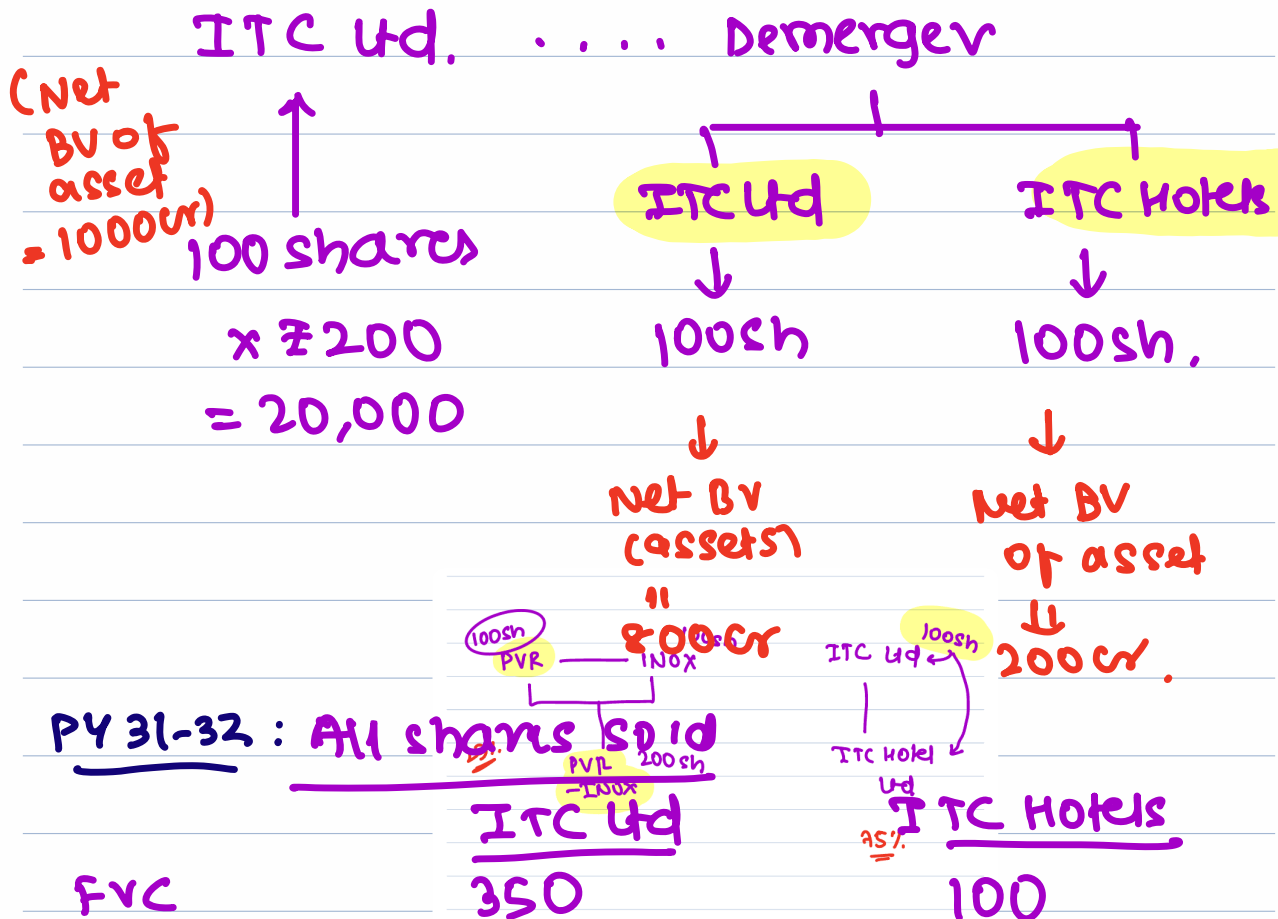 ITC Ltd. .... Demerger
(Net
BV of
asset
= 1000cr)
100 shares
x ₹200
= 20,000
ITC Ltd
ITC Hotels
100sh
100sh.
Net BV
(assets)
"
800 Cr
Net BV
of asset
"
200 Cr.
100sh
PVR
INOX
PVR
-INOX
200sh
ITC Ltd
100sh
ITC Hotel
Ltd
75%
PY 31-32 : All shares sold
ITC Ltd
ITC Hotels
FVC
350
100